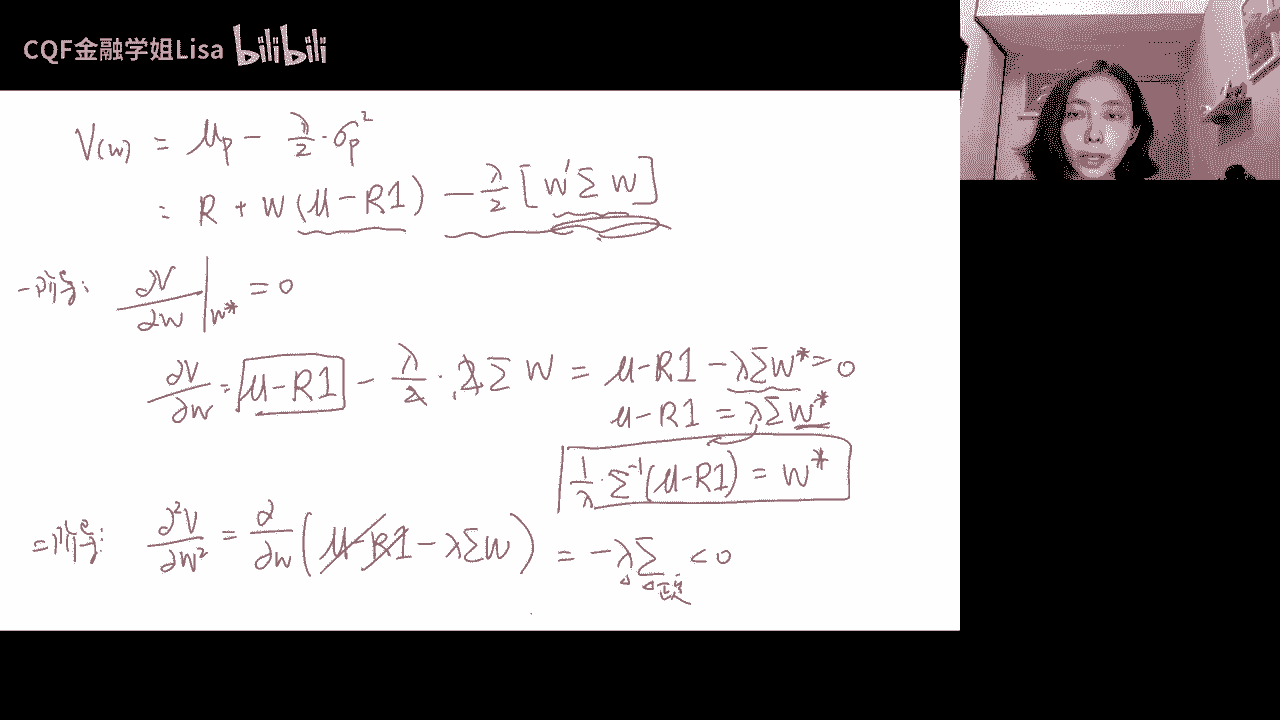 CQF金融学姐Lisa bilibili
V(w) = μp − λ/2 · σp²
= R + W(μ−R1) − λ/2 [w'Σw]
一阶导: ∂V/∂w |w* = 0
∂V/∂w = μ−R1 − λ/2 · 2ΣW = μ−R1 − λΣW* = 0
μ−R1 = λΣW*
1/λ · Σ⁻¹(μ−R1) = W*
二阶导: ∂²V/∂W² = ∂/∂w (μ−R1 − λΣW) = −λΣ < 0
正定